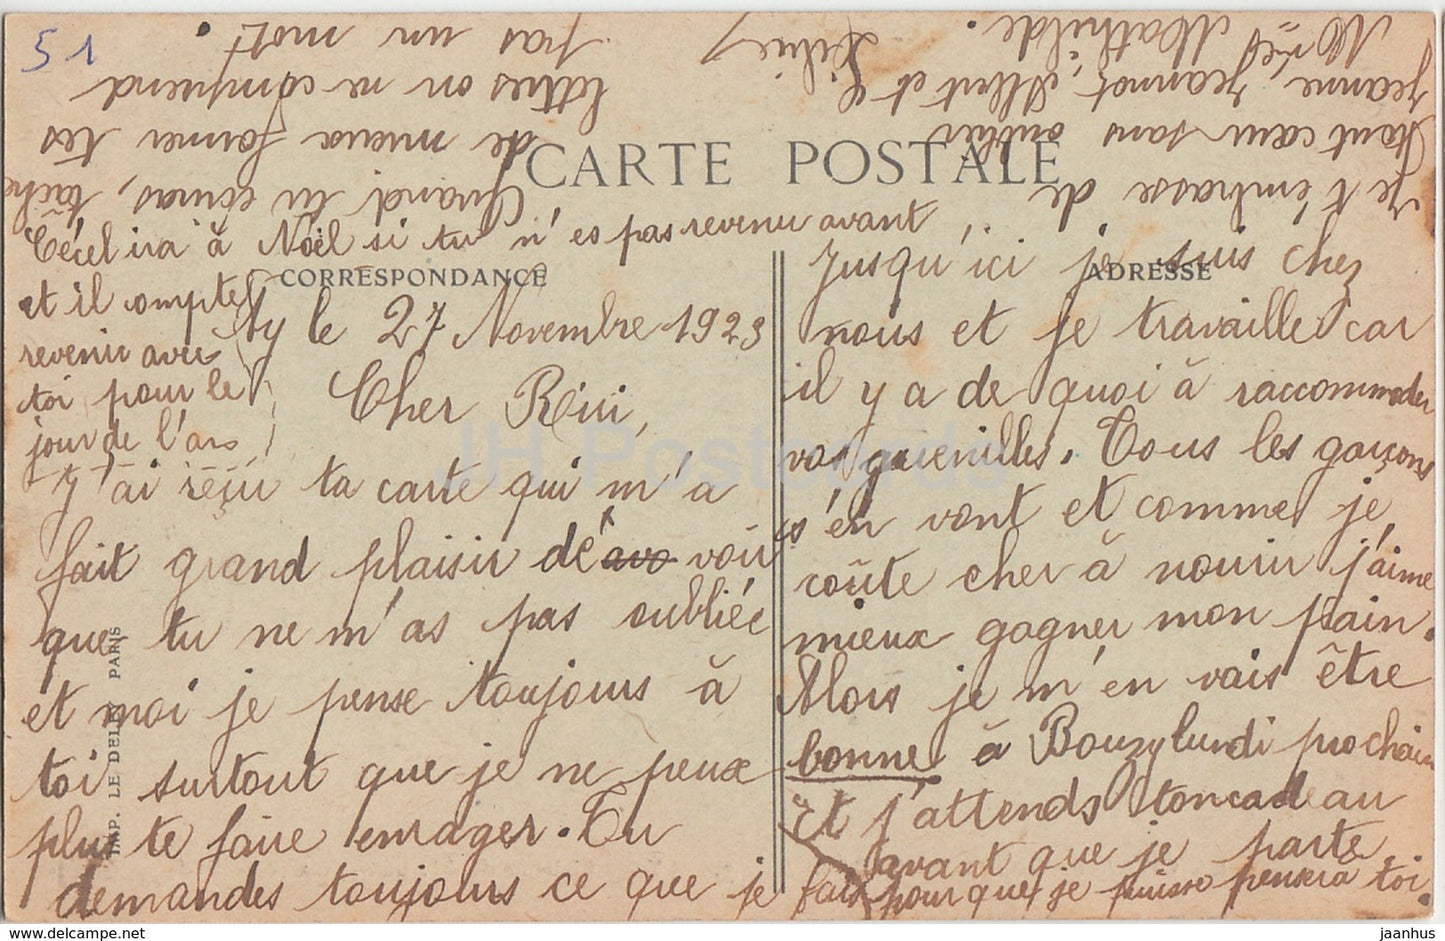 51
CARTE POSTALE
CORRESPONDANCE
ADRESSE
Ay le 27 Novembre 1923
Cher Riri,
J'ai reçu ta carte qui m'a
fait grand plaisir de voir
que tu ne m'as pas oubliée
et moi je pense toujours à
toi surtout que je ne peux
plus te faire enrager. Tu
demandes toujours ce que je
fais
Jusqu'ici je suis chez
nous et je travaille car
il y a de quoi à raccommoder
vos guenilles. Tous les garçons
s'en vont et comme je
coûte cher à nourir j'aime
mieux gagner mon pain.
Alors je m'en vais être
bonne à Bouzy lundi prochain
Et j'attends ton cadeau
avant que je parte
pour que je puisse penser à toi.
Je t'embrasse de
tout cœur sans oublier
Jeanne, Jeannot, Albert et
Mathilde.
Quand tu écriras, tâche
de mieux former tes
lettres on ne comprend
pas un mot.
Cécel ira à Noël si tu n'es pas revenu avant
et il compte
revenir avec
toi pour le
jour de l'an
IMP. LE DELEY PARIS
JH Postcards
jaanhus